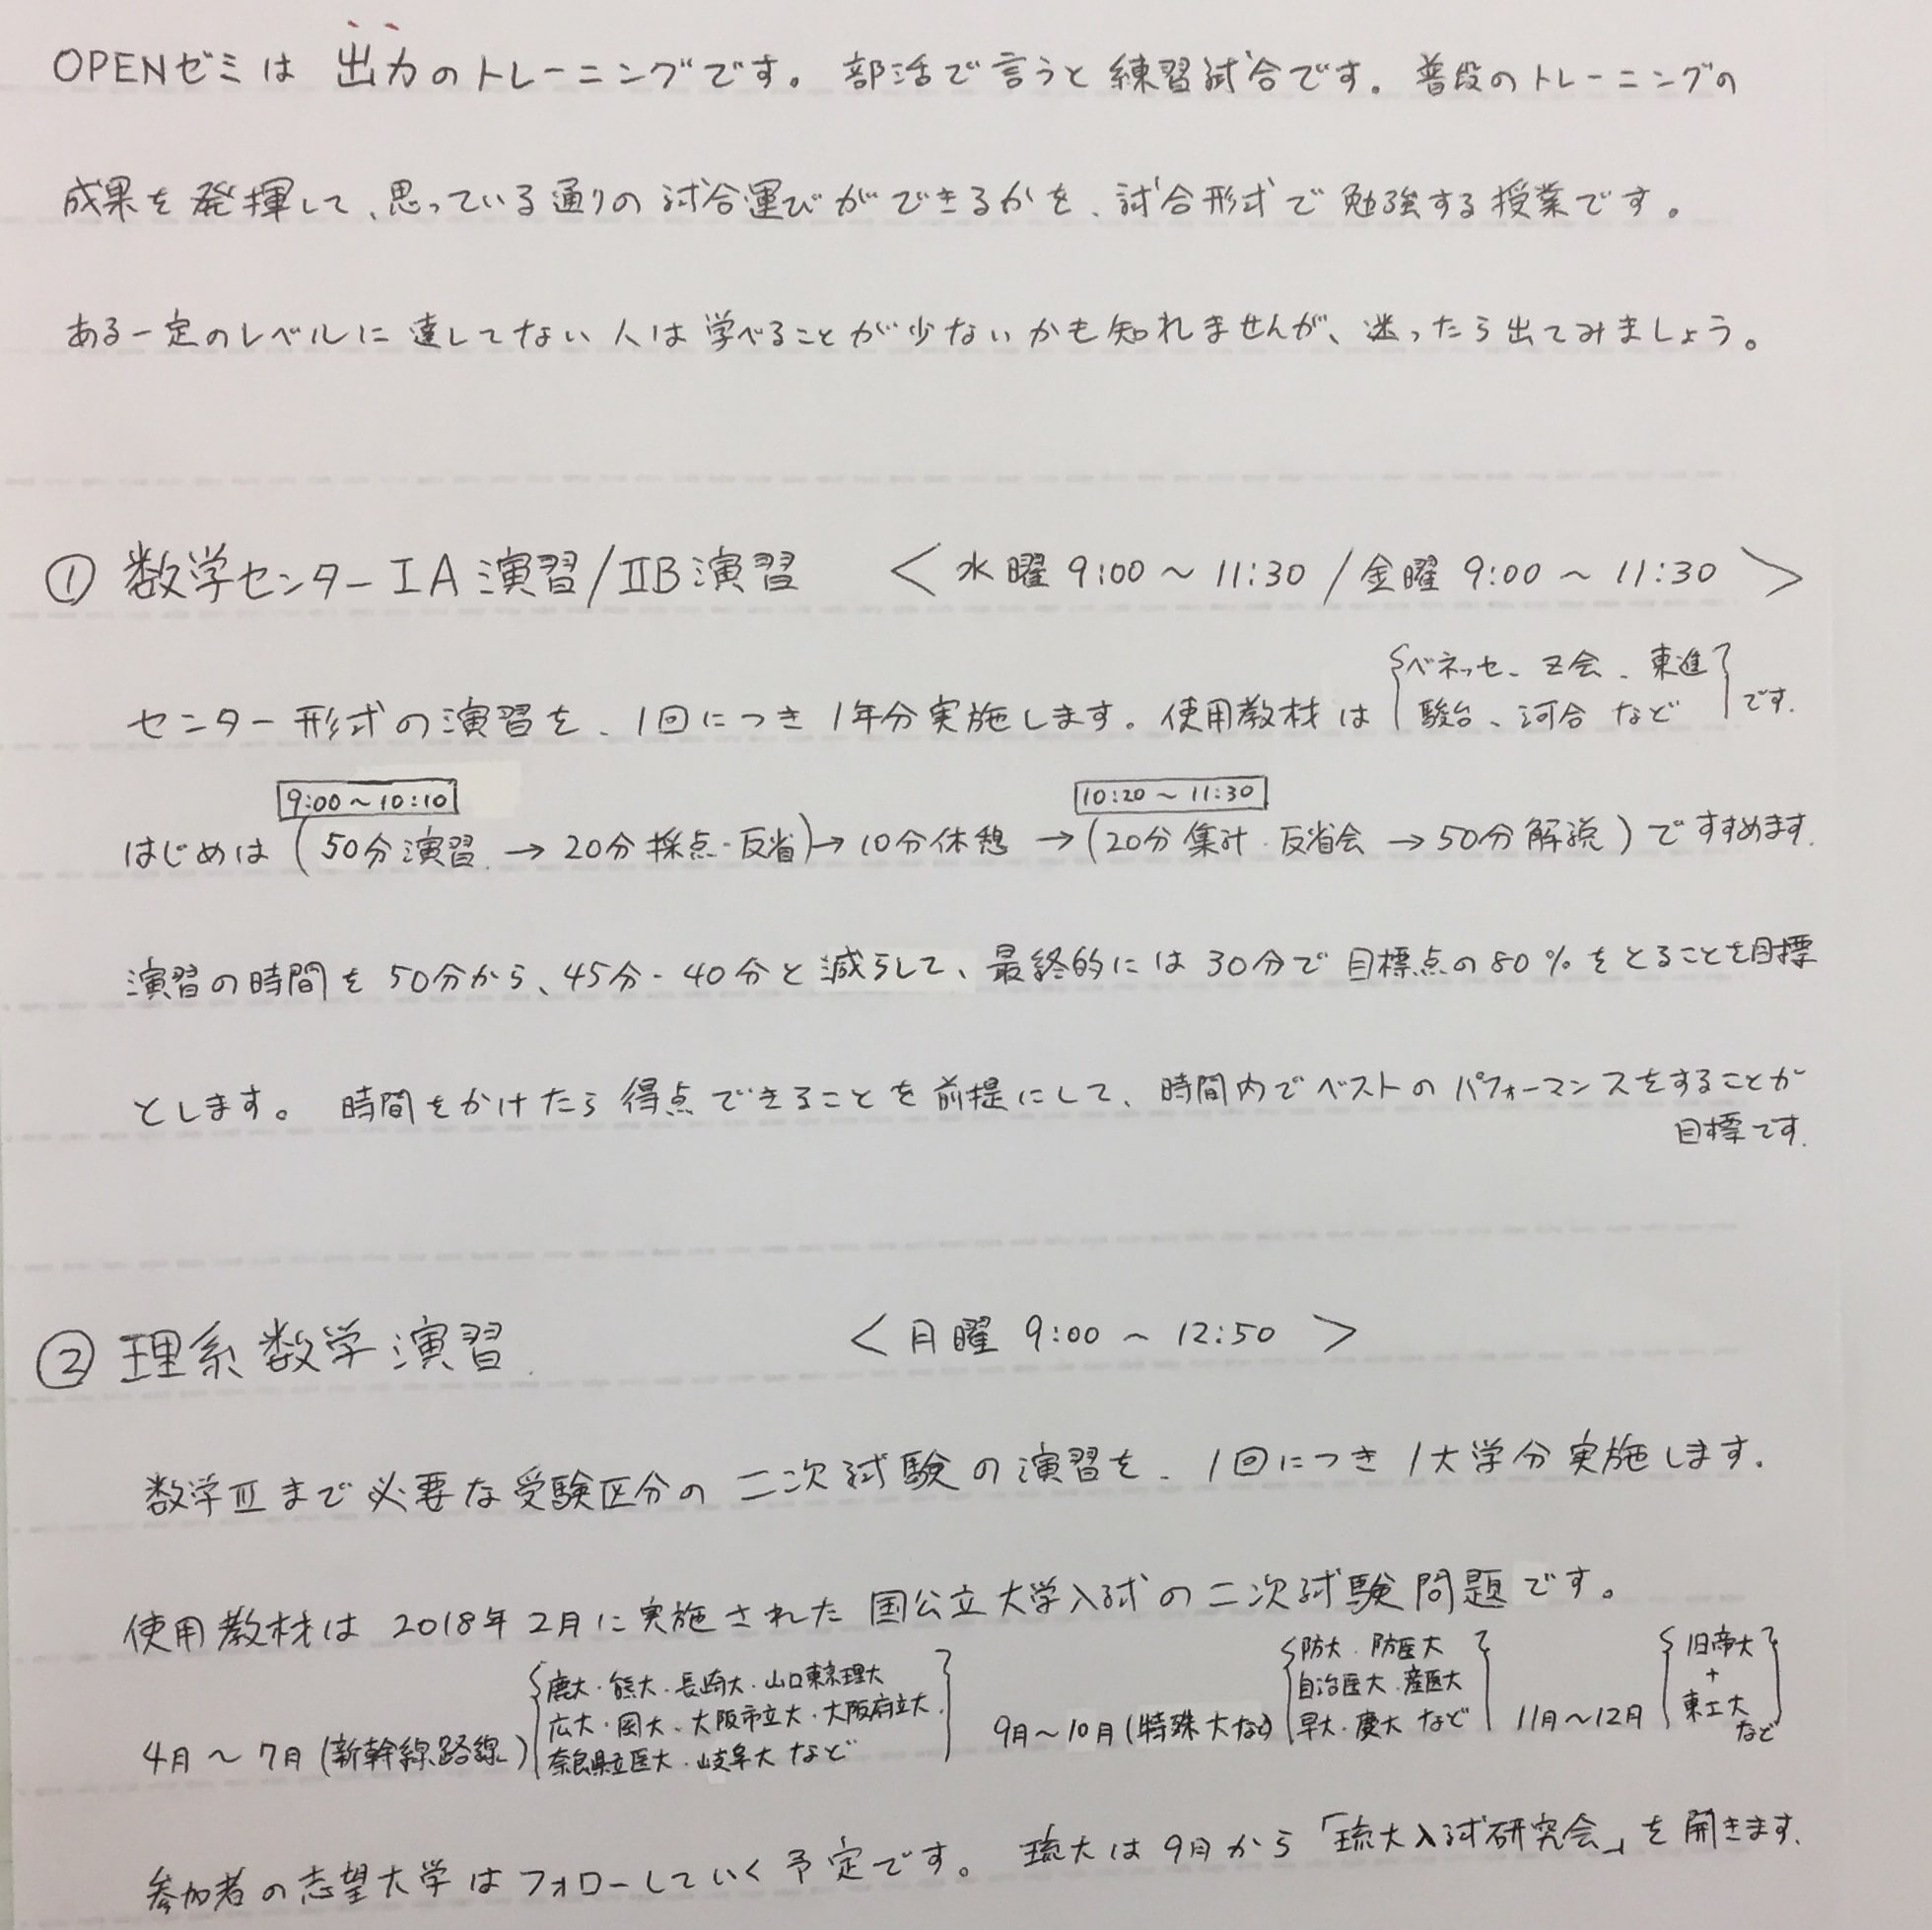 OPENゼミは 出力のトレーニングです。部活で言うと練習試合です。普段のトレーニングの
成果を発揮して、思っている通りの試合運びができるかを、試合形式で勉強する授業です。
ある一定のレベルに達してない人は学べることが少ないかも知れませんが、迷ったら出てみましょう。
① 数学センターⅠA演習/ⅡB演習 <水曜 9:00～11:30/金曜 9:00～11:30>
{ベネッセ、Z会、東進
センター形式の演習を、1回につき1年分実施します。使用教材は 駿台、河合 など}です。
9:00～10:10 10:20～11:30
はじめは(50分演習→20分採点・反省)→10分休憩→(20分集計・反省会→50分解説)ですすめます。
演習の時間を50分から、45分・40分と減らして、最終的には30分で目標点の80%をとることを目標
とします。時間をかけたら得点できることを前提にして、時間内でベストのパフォーマンスをすることが
目標です。
② 理系数学演習 <月曜 9:00～12:50>
数学Ⅲまで必要な受験区分の二次試験の演習を、1回につき1大学分実施します。
使用教材は2018年2月に実施された国公立大学入試の二次試験問題です。
4月～7月(新幹線路線){鹿大・熊大・長崎大・山口東京理大
広大・岡大・大阪市立大・大阪府立大
奈良県立医大・岐阜大 など}
9月～10月(特殊大など){防大・防医大
自治医大・産医大
早大・慶大 など}
11月～12月{旧帝大
+
東工大
など}
参加者の志望大学はフォローしていく予定です。琉大は9月から「琉大入試研究会」を開きます。